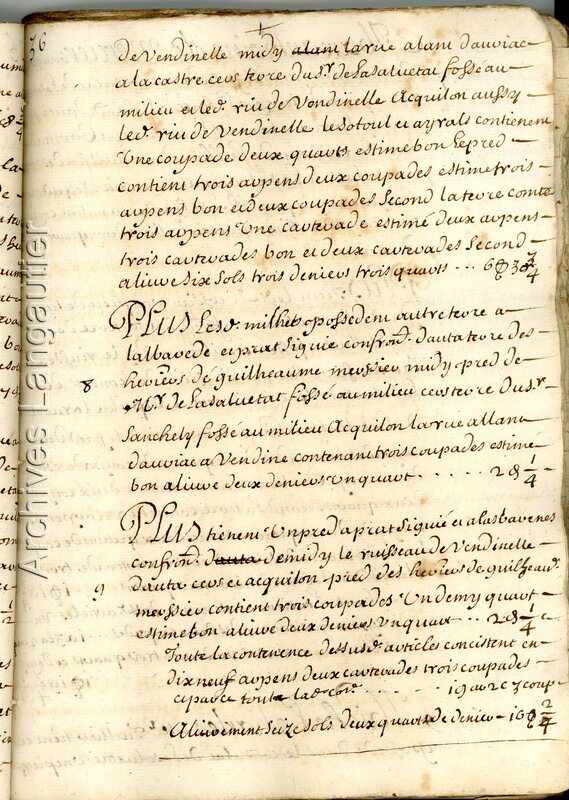 36
de Vendinelle midy alant la rue alant dauriac
a la castre cers terre du Sr. de Lasalvetat fossé au
milieu et led. riu de Vendinelle Acquilon aussy
led. riu de Vendinelle le sotoul et ayrals contienent
Une coupade deux quarts estime bon Le pred
contient trois arpens deux coupades estime trois
arpens bon et deux coupades Second la terre conte
trois arpens Une carterade estimé deux arpens
trois carterades bon et deux carterades Second
alivre Six sols trois deniers trois quarts ... 6 3 3/4
PLUS Lesd. milhets possedent autre terre a
lalbarede et prat Siguie confron. dauta terre des
8
heritiers de guilheaume messier midy pred de
Mr. de Lasalvetat fossé au milieu cers terre du Sr.
Sanchely fossé au milieu Acquilon la rue allant
dauriac a Vendine contenant trois coupades estimé
bon alivre deux deniers Un quart ..... 2 1/4
PLUS tienent Un pred a prat Siguié et a las barenes
confron. dauta de midy le ruisseau de Vendinelle
9
dauta cers et acquilon pred des heritiers de guilheaud.
messier contient trois coupades Un demy quart
estime bon alivre deux deniers Un quart ... 2 1/4
Toute la contenence dessusd. articles concistent en
dix neuf arpens deux carterades trois coupades
toute lad. 19 ar 2 c 3 coup
Alivrement Seize Sols deux quarts de denier 16 2/4
Archives Langautier